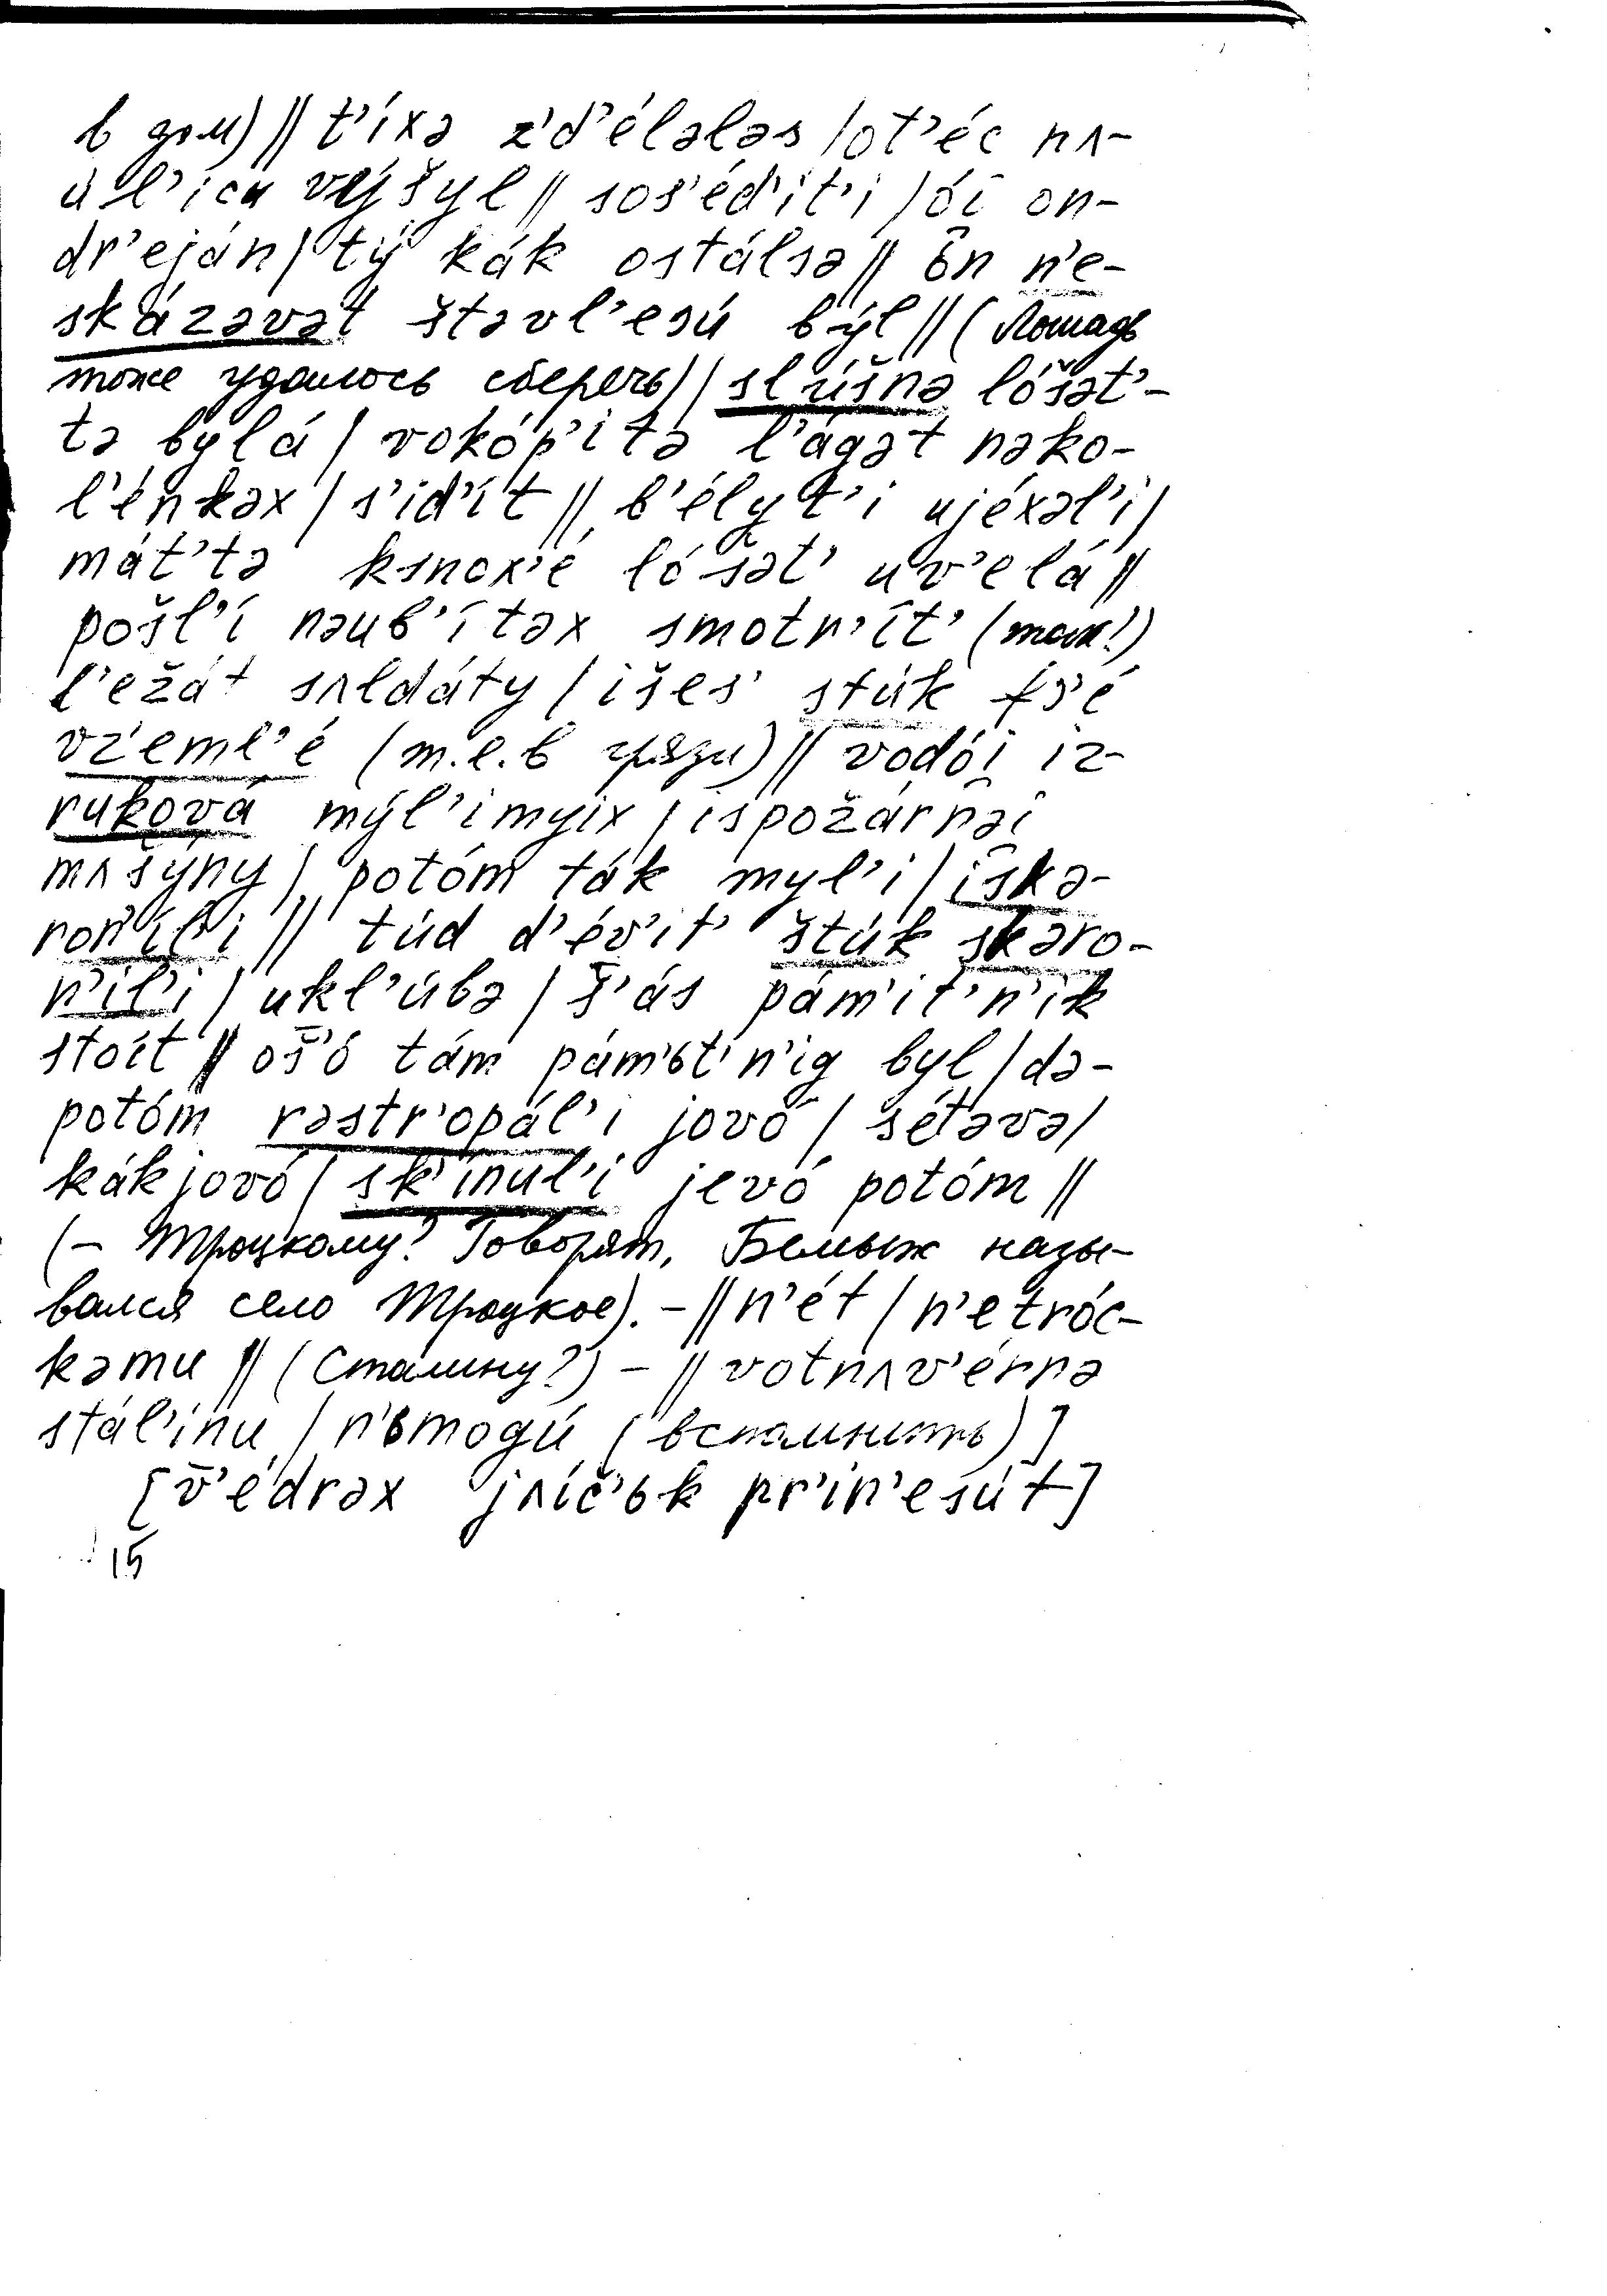 в дом) || t’íxə z’d’élələs / ot’éc nʌ-
úl’icu výšyl || sos’éd’it’i / ói̯ on-
dr’eján / tý kák ostálsə || ôn n’e-
skázəvət štəvl’esú býl || (Лошадь
тоже удалось сберечь) / slúšnə lóšət’-
tə bylá / vokóp’itə l’ágət nəko-
l’énkəx / s’id’ít || b’élyt’i ujéxəl’i /
mát’tə ksnox’é lóšət’ uv’elá ||
pošl’í nəub’ítəx smotr’ít’ (так!)
l’ežát sʌldáty / išes’ štúk fs’é
vz’eml’é (т.е. в грязи) || vodói̯ iz-
ruková mýl’imyix / ispožárnəi̯
mʌšýny / potóm ták myl’i / iskə-
ron’íl’i || túd d’év’it’ štúk skəro-
n’íl’i / ukl’úbə / š̄’ás pám’it’n’ik
stoít || oš̄’ó tám pám’ьt’n’ig byl / də-
potóm rəstr’opál’i jovó / sétəvə /
kákjovó / sk’ínul’i jevó potóm ||
(– Троцкому? Говорят, Бемыж назы-
вался село Троцкое). – || n’ét / n’etróc-
kəmu || (Сталину?) – || votnʌv’érnə
stál’inu / n’ьmogú (вспомнить)]
[v̄’édrəx jʌíč’ьk pr’in’esút]
15